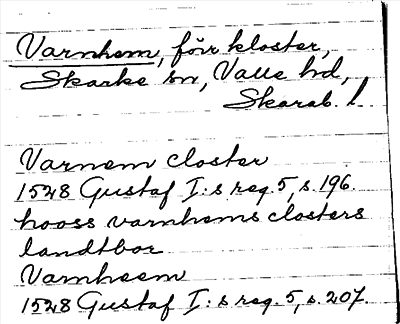 Varnhem, förr kloster,
Skarke sn, Valle hd,
Skarab. l.
Varnem closter
1528 Gustaf I:s reg. 5, s. 196.
hooss varnhems closters
landtbor
Varnheem
1528 Gustaf I:s reg. 5, s. 207.